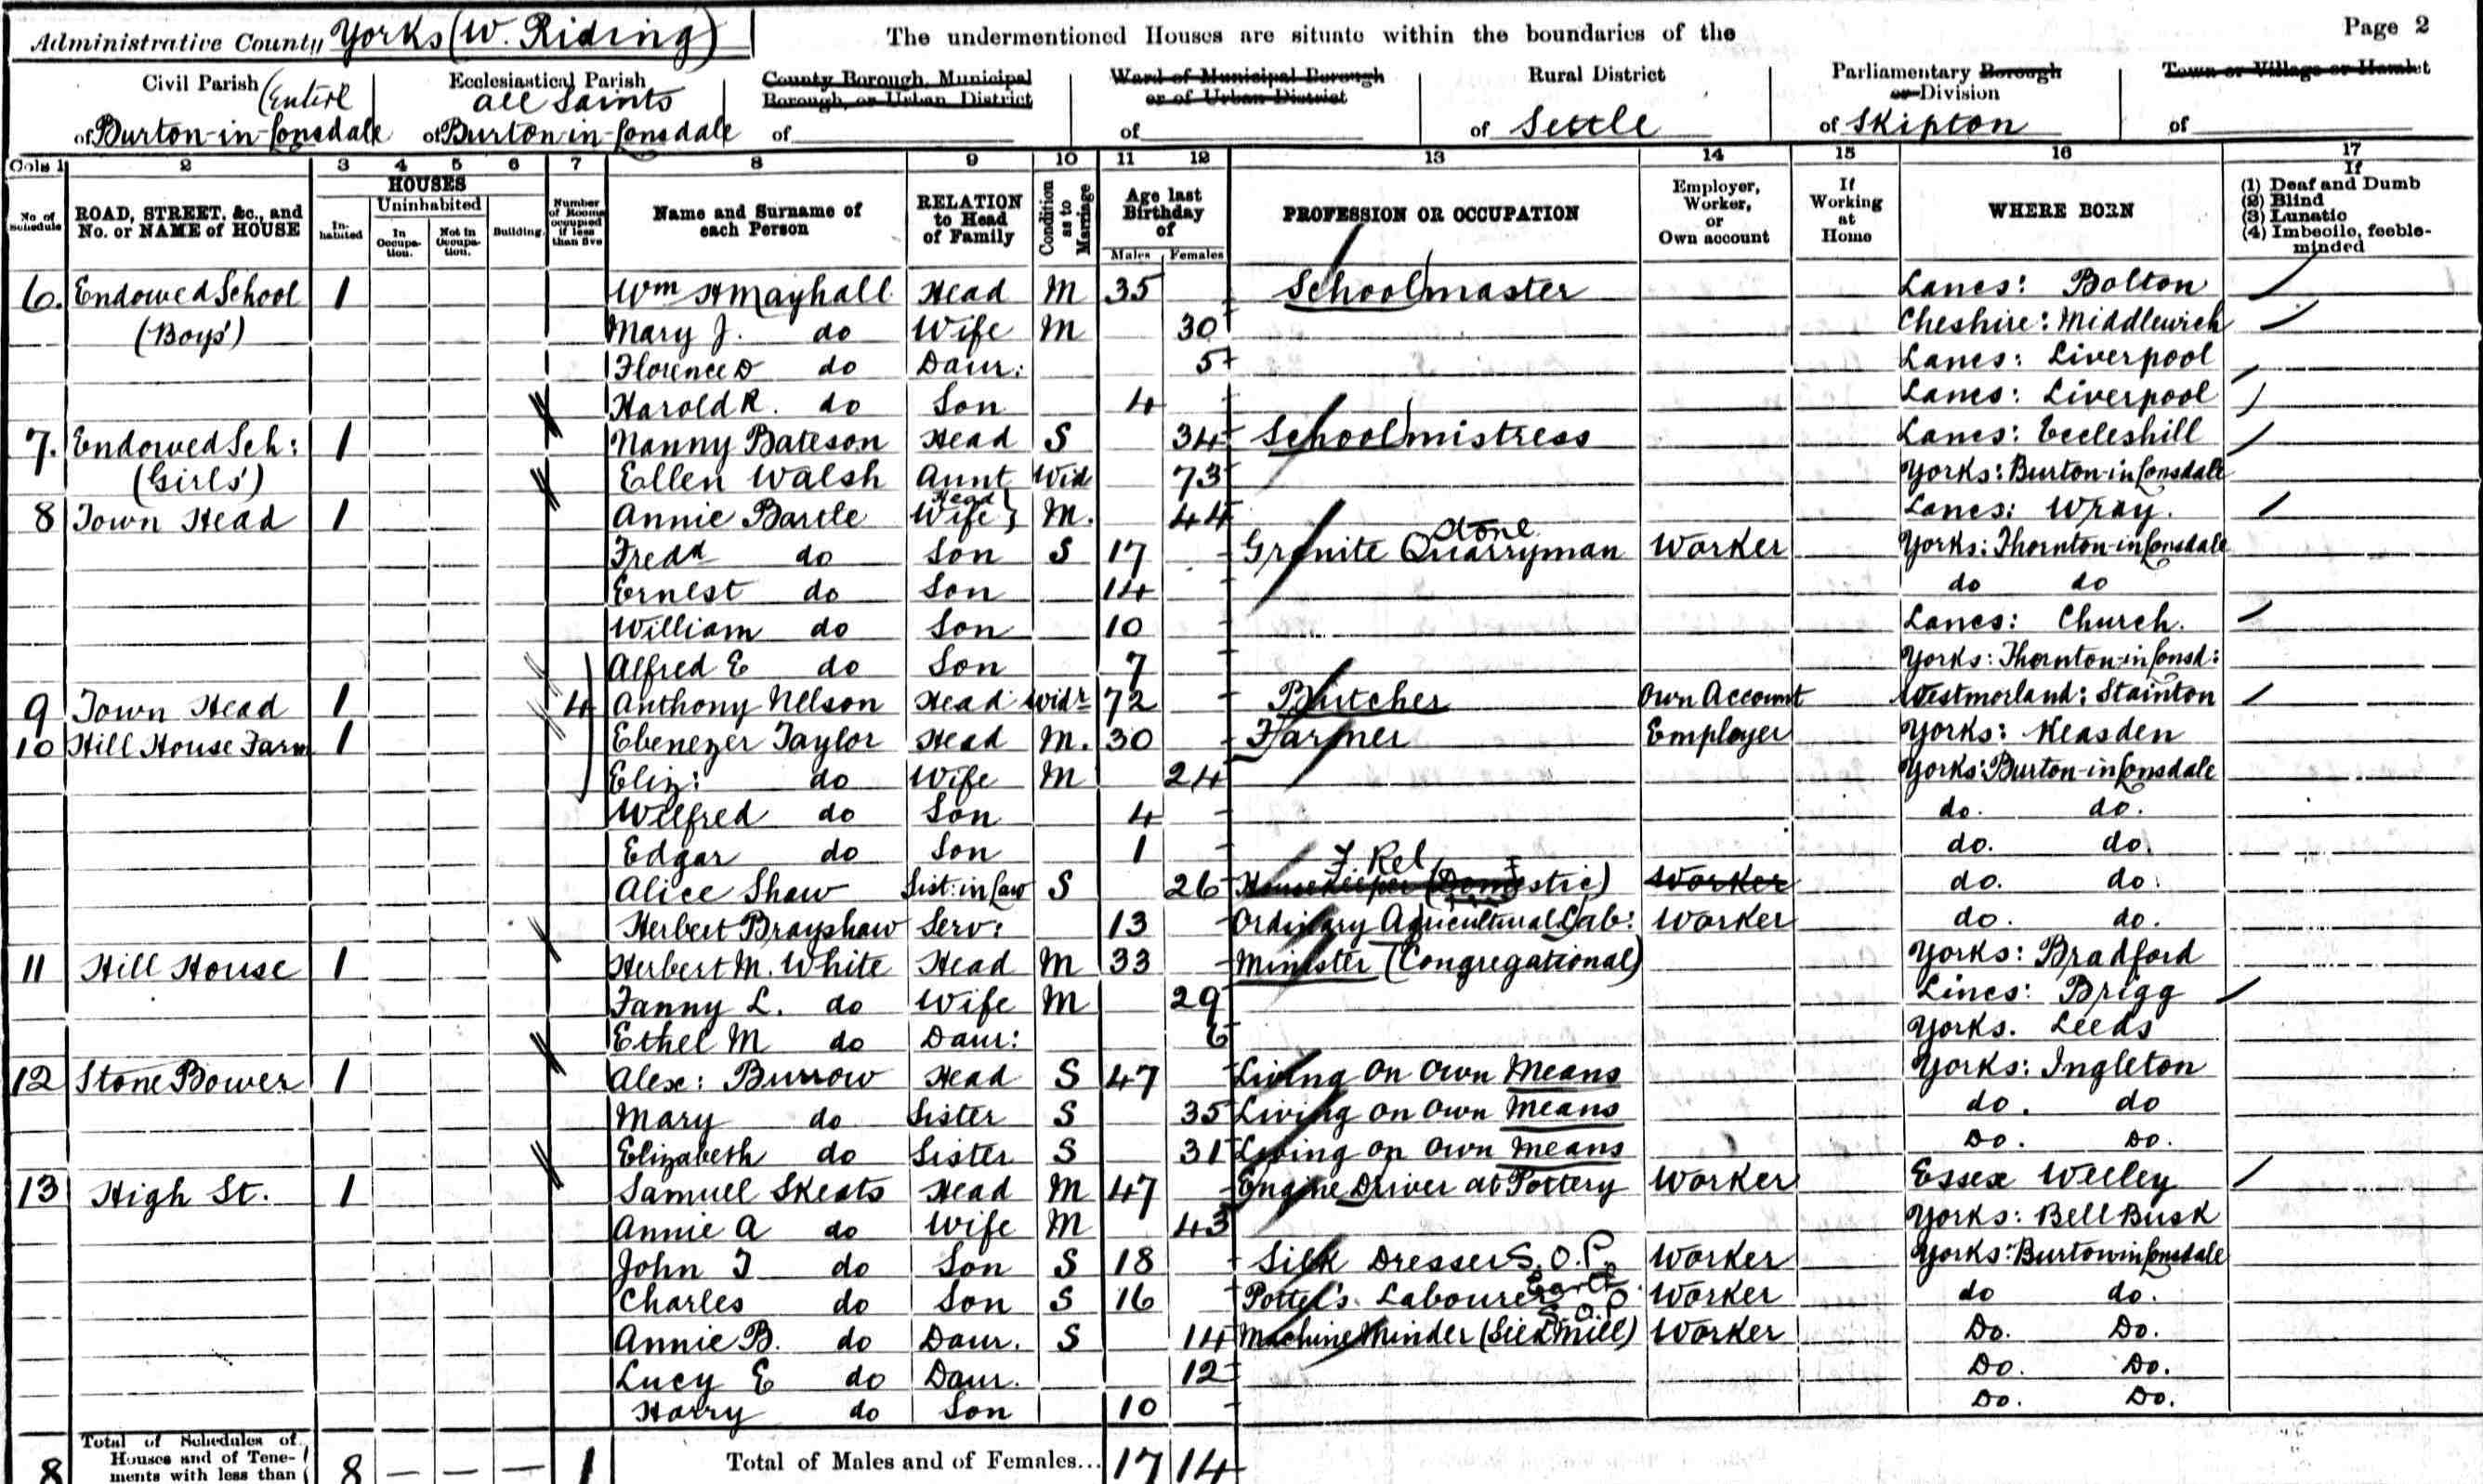 Administrative County Yorks (W. Riding) The undermentioned Houses are situate within the boundaries of the Page 2
Civil Parish (Entire of Burton-in-Lonsdale
Ecclesiastical Parish All Saints of Burton-in-Lonsdale
County Borough, Municipal Borough, or Urban District of
Ward of Municipal Borough or of Urban District of
Rural District of Settle
Parliamentary Borough or Division of Skipton
Town or Village or Hamlet of
Cols 1 2 3 4 5 6 7 8 9 10 11 12 13 14 15 16 17
No. of Schedule
ROAD, STREET, &c., and No. or NAME of HOUSE
HOUSES
Inhabited
Uninhabited
In Occupation.
Not in Occupation.
Building.
Number of Rooms occupied if less than five
Name and Surname of each Person
RELATION to Head of Family
Condition as to Marriage
Age last Birthday of
Males Females
PROFESSION OR OCCUPATION
Employer, Worker, or Own account
If Working at Home
WHERE BORN
If
(1) Deaf and Dumb
(2) Blind
(3) Lunatic
(4) Imbecile, feeble-minded
6. Endowed School 1 Wm H Mayhall Head M 35 Schoolmaster Lancs: Bolton
(Boys') Mary J. do Wife M 30 Cheshire: Middlewich
Florence D do Daur: 5 Lancs: Liverpool
Harold R. do Son 4 Lancs: Liverpool
7. Endowed Sch: 1 Nanny Bateson Head S 34 Schoolmistress Lancs: Eccleshill
(Girls') Ellen Walsh Aunt Wid 73 Yorks: Burton-in-Lonsdale
8 Town Head 1 Annie Bartle Head Wife } M. 44 Lancs: Wray.
Fredk do Son S 17 Granite Stone Quarryman Worker Yorks: Thornton-in-Lonsdale
Ernest do Son 14 do do
William do Son 10 Lancs: Church.
Alfred E do Son 7 Yorks: Thornton-in-Lonsd:
9 Town Head 1 4 Anthony Nelson Head Widr 72 Butcher Own Account Westmorland: Stainton
10 Hill House Farm 1 Ebenezer Taylor Head M. 30 Farmer Employer Yorks: Keasden
Eliz: do Wife M 24 Yorks: Burton-in-Lonsdale
Wilfred do Son 4 do. do.
Edgar do Son 1 do. do.
Alice Shaw Sist: in Law S 26 Housekeeper (Domestic) Worker do. do.
Herbert Brayshaw Serv: 13 Ordinary Agricultural Lab: Worker do. do.
11 Hill House 1 Herbert M. White Head M 33 Minister (Congregational) Yorks: Bradford
Fanny L. do Wife M 29 Lincs: Brigg
Ethel M do Daur: 6 Yorks. Leeds
12 Stone Bower 1 Alex: Burrow Head S 47 Living on Own Means Yorks: Ingleton
Mary do Sister S 35 Living on Own Means do. do
Elizabeth do Sister S 31 Living on Own Means Do. Do.
13 High St. 1 Samuel Skeats Head M 47 Engine Driver at Pottery Worker Essex Weeley
Annie A do Wife M 43 Yorks: Bell Busk
John T do Son S 18 Silk Dresser S.O.P. Worker Yorks: Burton in Lonsdale
Charles do Son S 16 Potter's Labourer Earth Worker do do.
Annie B. do Daur. S 14 Machine Minder (Silk Mill) S.O.P Worker Do. Do.
Lucy E do Daur. 12 Do. Do.
Harry do Son 10 Do. Do.
8 Total of Schedules of Houses and of Tenements with less than 8 — — — 1 Total of Males and of Females... 17 14